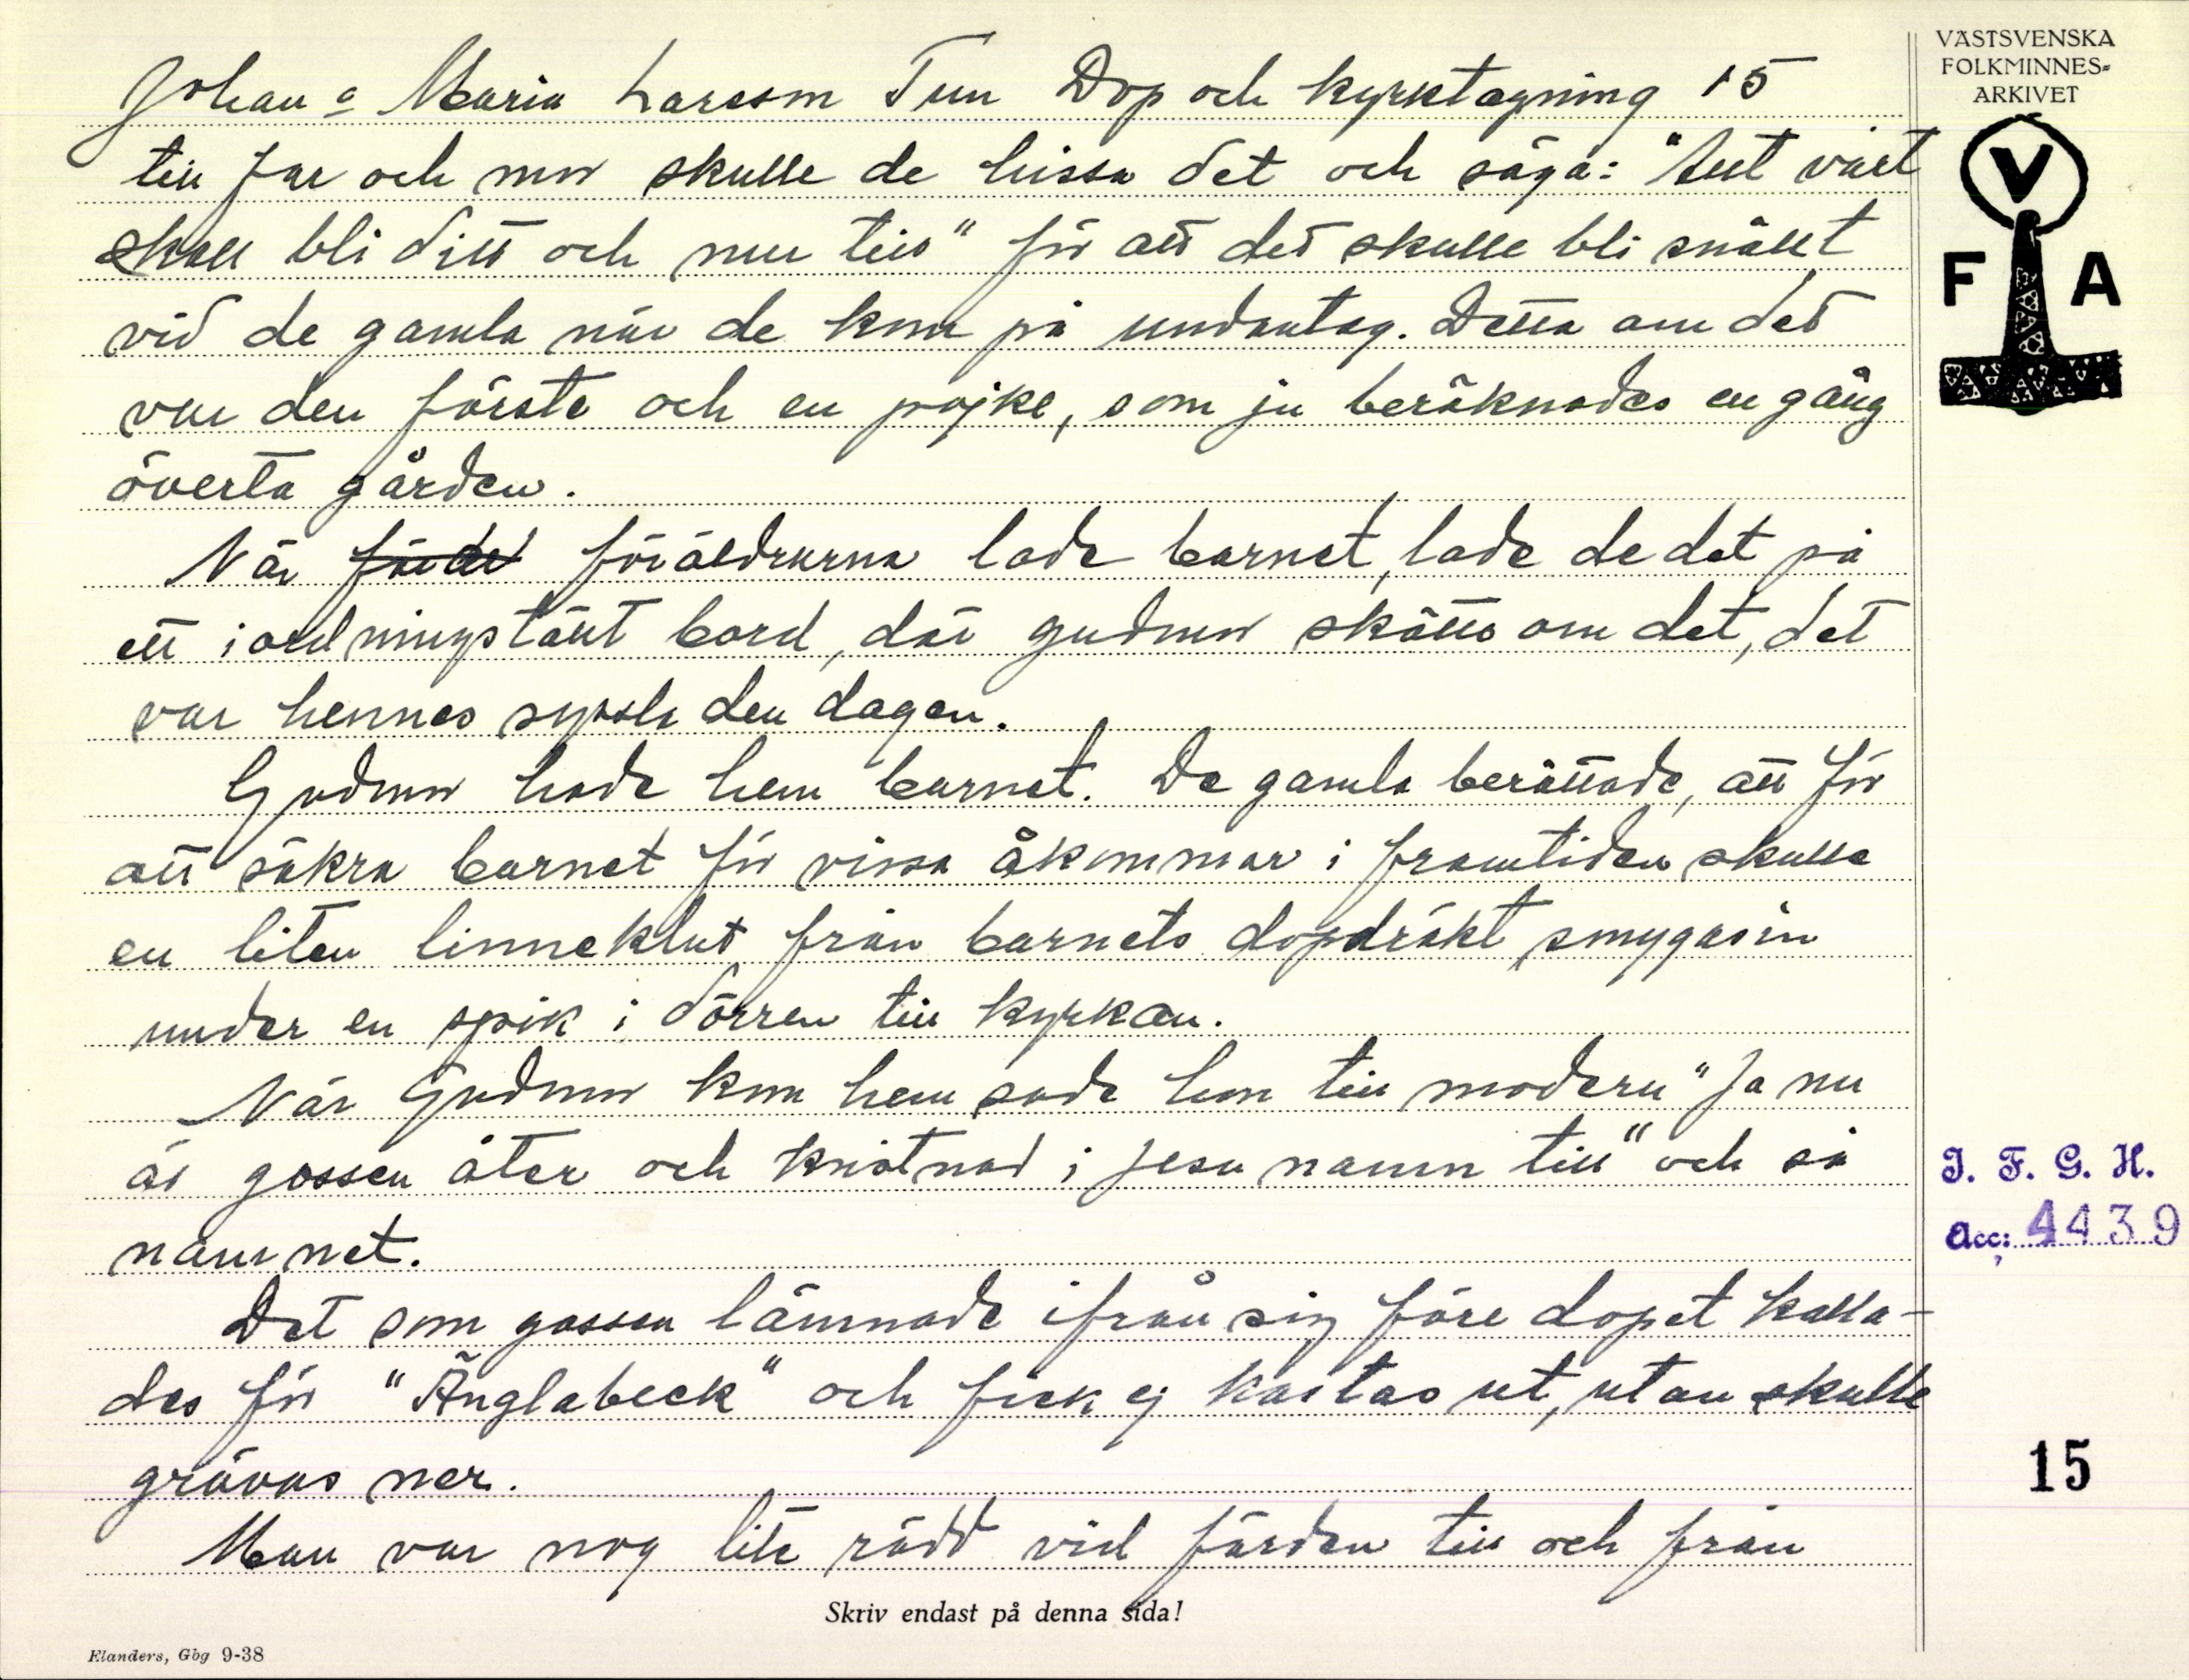 Johan o Maria Larsson Tun Dop och kyrktagning 15
till far och mor skulle de hissa det och säga: "Allt vårt
skall bli ditt och mer till" för att det skulle bli snällt
vid de gamla när de kom på undantag. Detta om det
var den förste och en pojke, som ju beräknades en gång
överta gården.
När föräldrarna lade barnet, lade de det på
ett iordningstält bord, där gudmor skötts om det, det
var hennes syssla den dagen.
Gudmor hade hem barnet. De gamla berättade, att för
att säkra barnet för vissa åkommor i framtiden skulle
en liten linneklut från barnets dopdräkt smygas in
under en spik i dörren till kyrkan.
När Gudmor kom hem sade hon till modern "Ja nu
är gossen åter och kristnad i Jesu namn till" och så
namnet.
Det som gossen lämnade ifrån sig före dopet kalla-
des för "Änglabeck" och fick ej kastas ut, utan skulle
grävas ner.
Man var nog lite rädd vid färden till och från
Skriv endast på denna sida!
Elanders, Gbg 9-38
VÄSTSVENSKA
FOLKMINNES-
ARKIVET
V
F A
I. F. G. H.
Acc: 4439
15